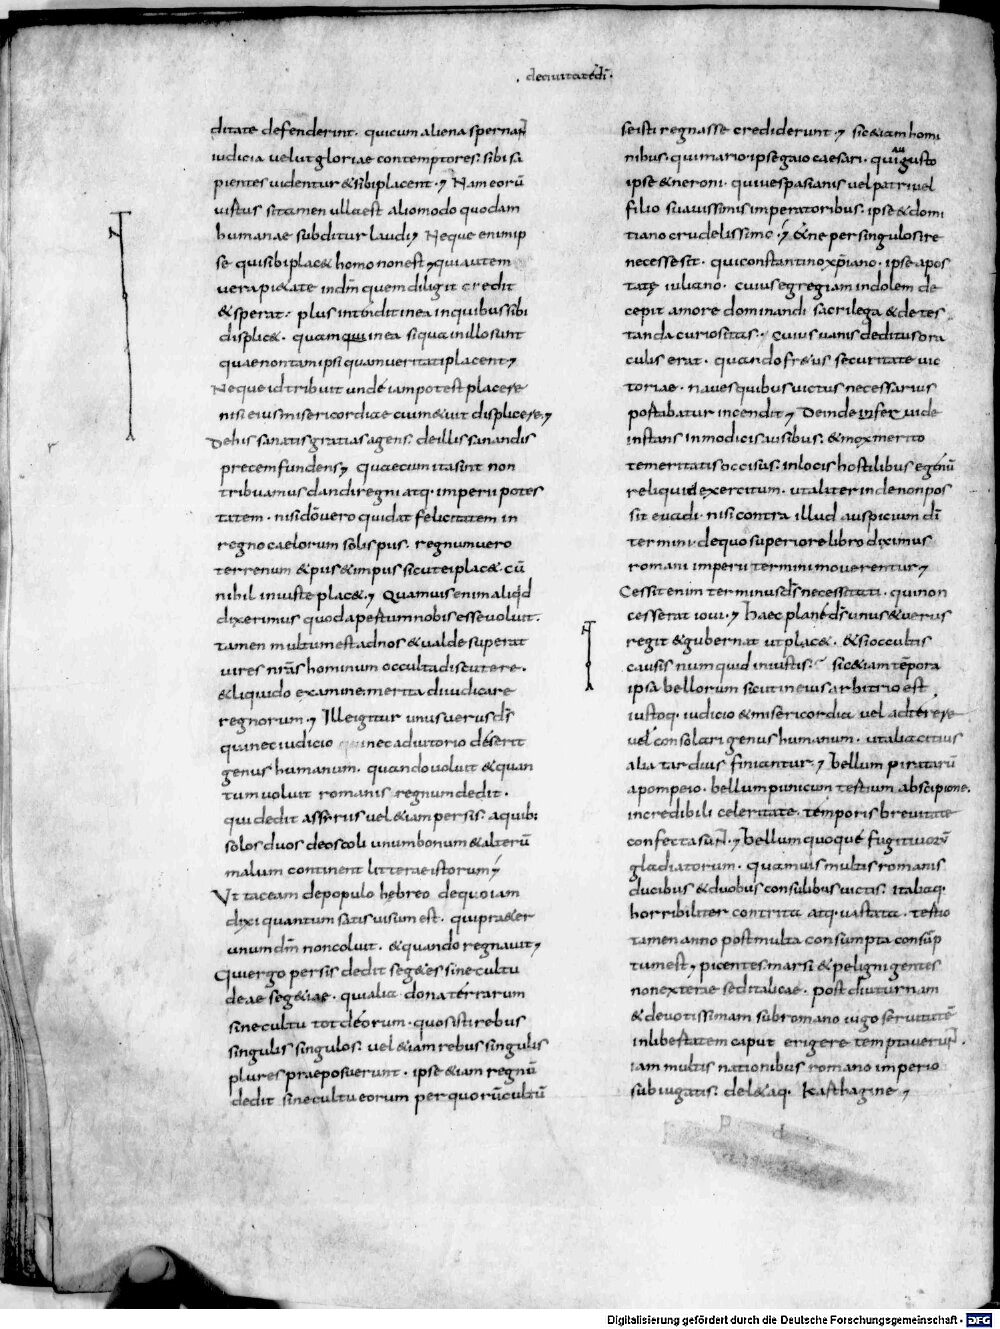 . deciuitatedī.
ditate defenderint. quicum aliena spernaɴ̄
iudicia velut gloriae contemptores. sibi sa
pientes uidentur & sibi placent. Nam eorū
uirtus si tamen ulla est alio modo quodam
humanae subditur laudi; Neque enim ip
se qui sibi plac& homo non est; qui autem
uera pi&ate indm̄ quem diligit credit
& sperat. plus intendit in ea in quibus sibi
displic&. quam in ea si qua in illo sunt
quae non tam ipsi quam ueritati placent;
Neque id tribuit unde iam potest placere
nisi eius misericordiae cui m&uit displicere;
De his sanatis gratias agens. de illis sanandis
precem fundens; Quae cum ita sint non
tribuamus dandi regni atq. imperii potes
tatem. nisi dō uero qui dat felicitatem in
regno caelorum solis piis. regnum uero
terrenum & piis & impiis sicut ei plac& cū
nihil iniuste plac&; Quamuis enim aliqd
dixerimus quod apertum nobis esse uoluit.
tamen multum est ad nos & ualde superat
uires nr̄as hominum occulta discutere.
& liquido examine merita diiudicare
regnorum; Ille igitur unus uerus ds̄
qui nec iudicio nec adiutorio deserit
genus humanum. quando uoluit & quan
tum uoluit romanis regnum dedit.
qui dedit assyriis uel &iam persis. a quib;
solos duos deos coli unum bonum & alterū
malum continent litterae istorum;
Ut taceam de populo hebreo de quo iam
dixi quantum satis uisum est. qui pra&er
unum dm̄ non coluit. & quando regnauit;
Qui ergo persis dedit seg&es sine cultu
deae seg&iae. qui alia dona terrarum
sine cultu tot deorum. quos isti rebus
singulis singulos. uel &iam rebus singulis
plures praeposuerunt. ipse &iam regnū
dedit sine cultu eorum per quorū cultū
se isti regnasse crediderunt; sic &iam homi
nibus. qui mario ipse gaio caesari. qui augusto
ipse & neroni. qui uespasianis uel patri uel
filio suauissimis imperatoribus. ipse & domi
tiano crudelissimo; & ne per singulos ire
necesse sit. qui constantino xp̄iano. ipse apos
tatę iuliano. cuius egregiam indolem de
cepit amore dominandi sacrilega & detes
tanda curiositas. cuius uanis deditus ora
culis erat. quando fr&us securitate uic
toriae. naues quibus uictus necessarius
portabatur incendit; Deinde infer uide
instans inmodicis ausibus. & mox merito
temeritatis occisus. in locis hostilibus egenū
reliquid exercitum. ut aliter inde non pos
sit euadi. nisi contra illud auspicium dī
termini. de quo superiore libro diximus
romani imperii termini mouerentur;
Cessit enim terminus ds̄ necessitati. qui non
cesserat ioui; Haec plane ds̄ unus & uerus
regit & gubernat ut plac&. & si occultis
causis numquid iniustis. sic &iam tēpora
ipsa bellorum sicut in eius arbitrio est
iustoq. iudicio & misericordia uel adterere
uel consolari genus humanum. ut alia citius
alia tardius finiantur; Bellum piratarū
a pompeio. bellum punicum tertium ab scipione.
incredibili celeritate. temporis breuitate
confecta suɴ̄; Bellum quoque fugitiuorū
gladiatorum. quamuis multis romanis
ducibus & duobus consulibus uictis. italiaq.
horribiliter contrita atq. uastata. tertio
tamen anno post multa consumpta consūp
tum est; picentes. marsi & peligni gentes
non exterae sed italicae. post diuturnam
& deuotissimam sub romano iugo seruitutē
in libertatem caput erigere temptaueruɴ̄.
iam multis nationibus romano imperio
subiugatis. del&aq. karthagine;
Digitalisierung gefördert durch die Deutsche Forschungsgemeinschaft - DFG